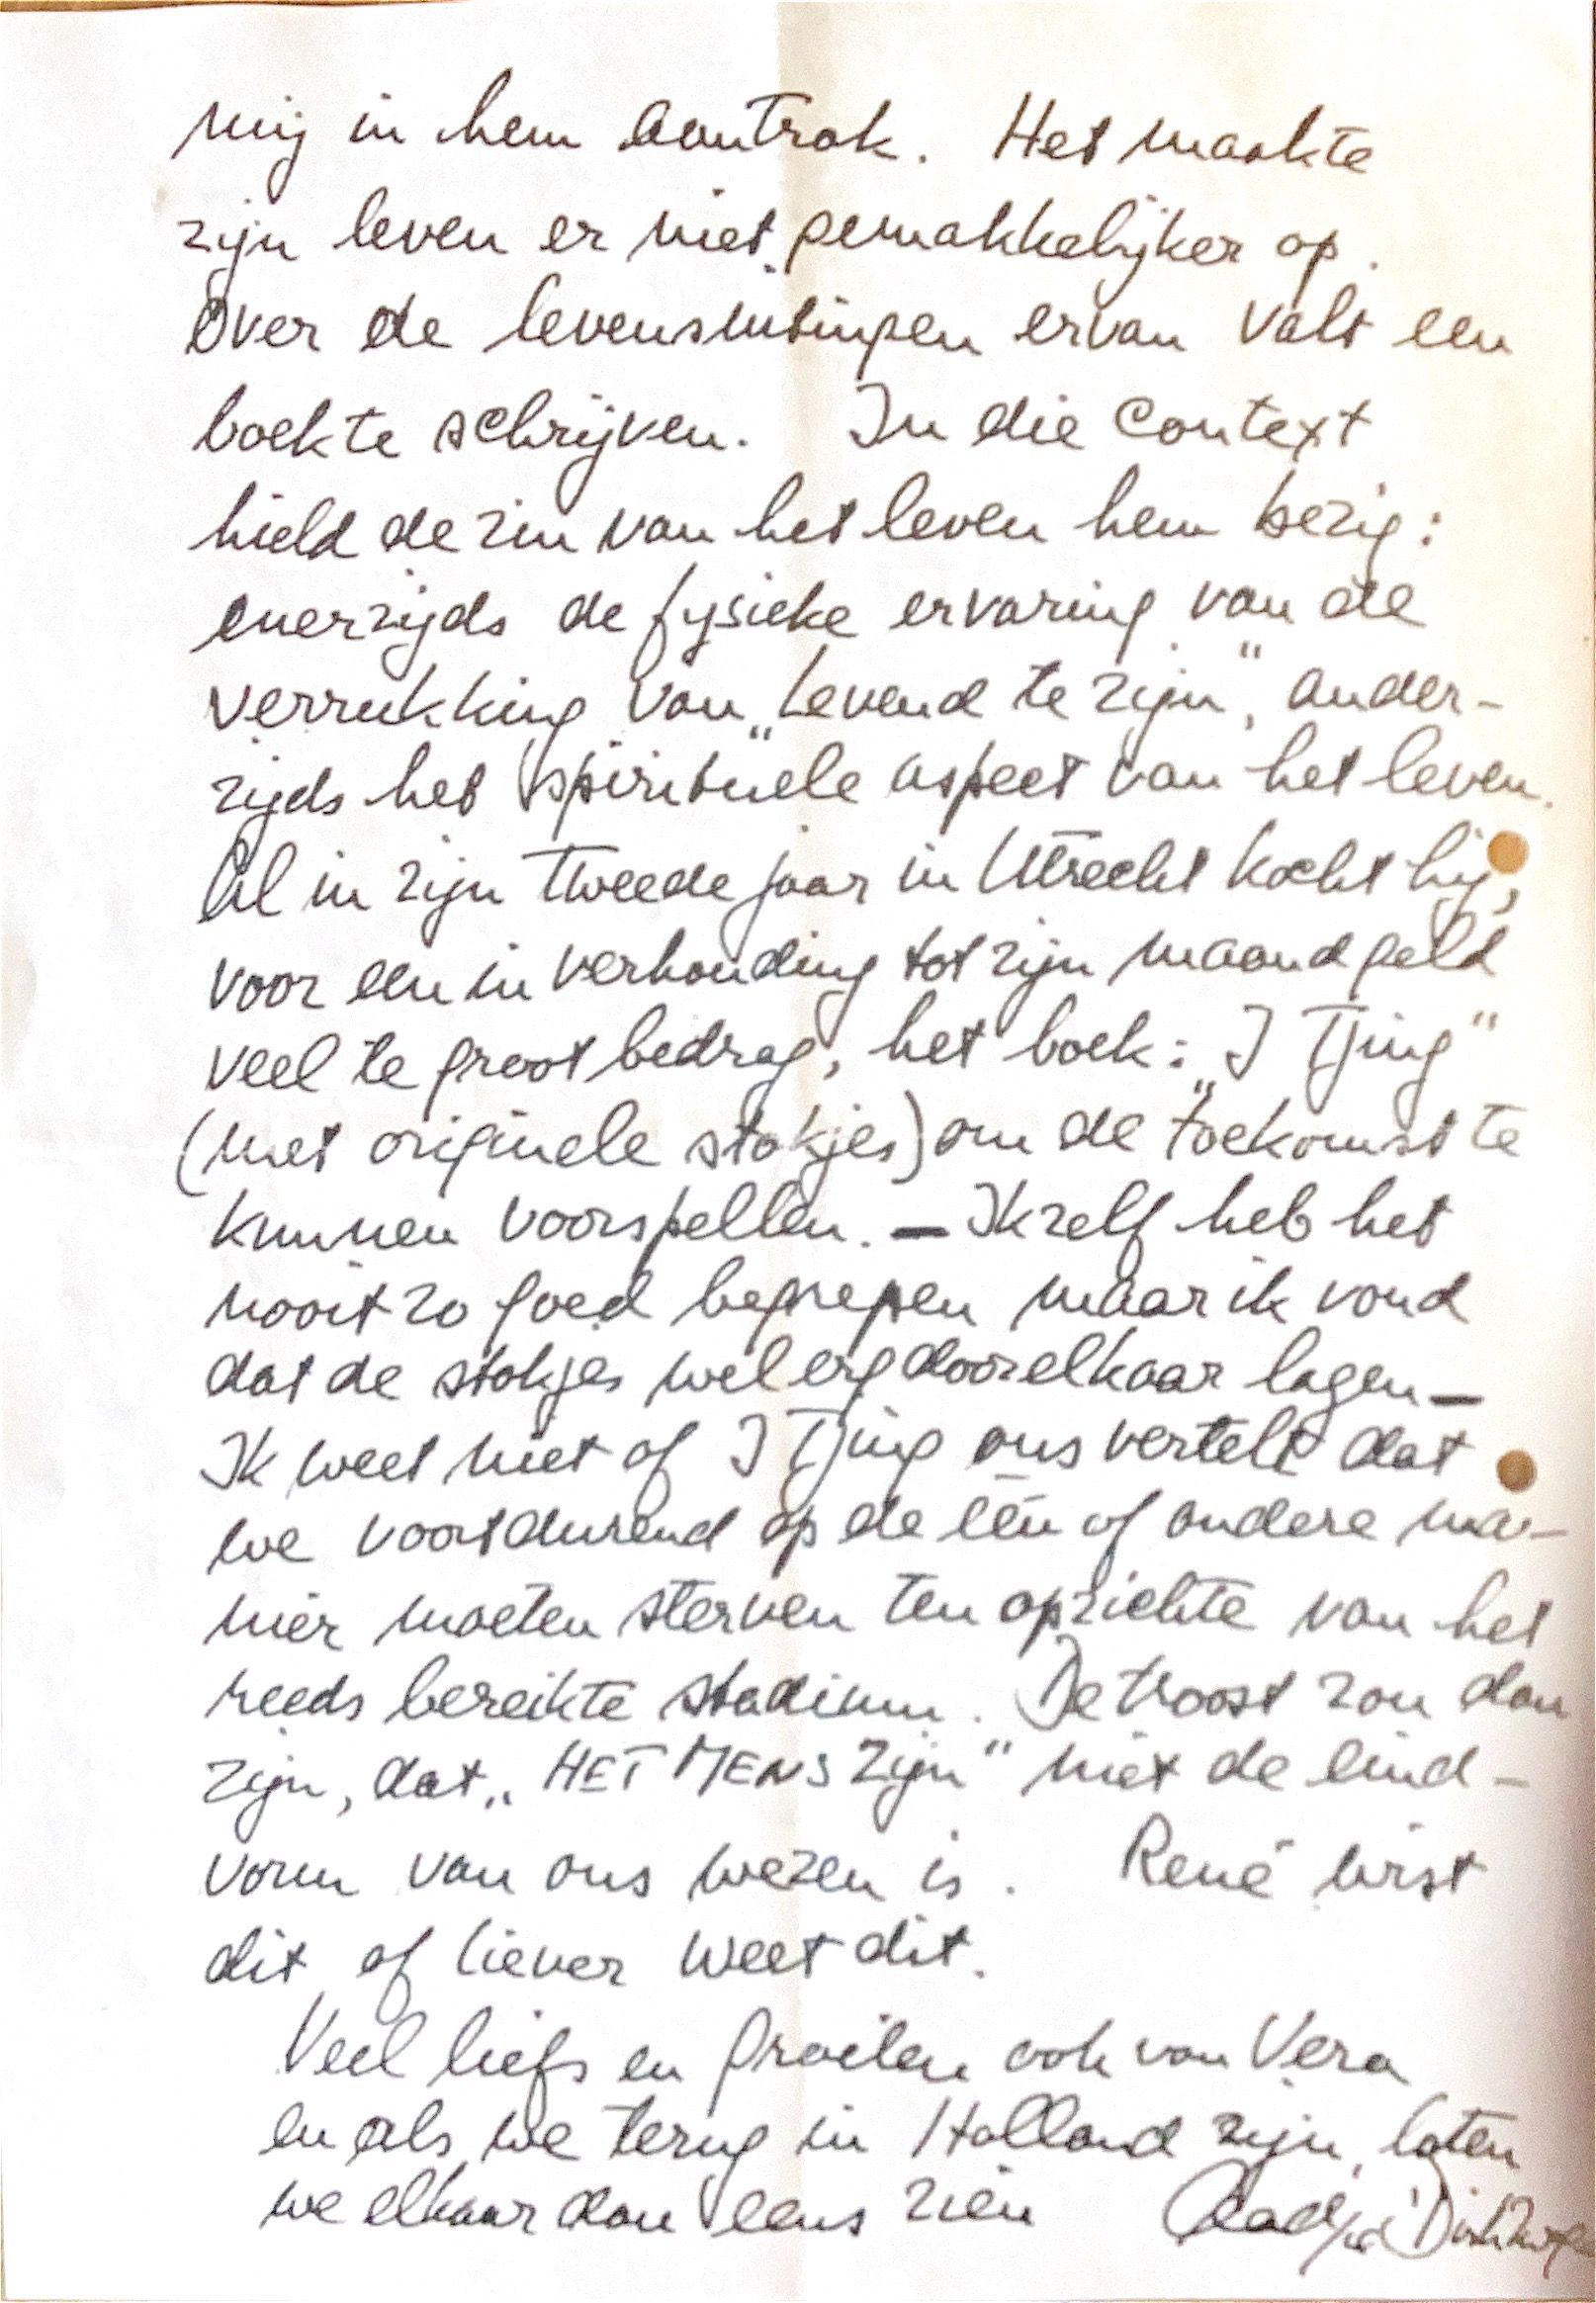 mij in hem aantrok. Het maakte
zijn leven er niet gemakkelijker op.
Over de levensuitingen ervan valt een
boek te schrijven. In die context
hield de zin van het leven hem bezig:
enerzijds de fysieke ervaring van de
verrukking van „levend te zijn", ander-
zijds het spirituele aspect van het leven.
Al in zijn tweede jaar in Utrecht kocht hij,
voor een in verhouding tot zijn maandgeld
veel te groot bedrag, het boek: „I Tjing"
(met originele stokjes) om de toekomst te
kunnen voorspellen. — Ik zelf heb het
nooit zo goed begrepen maar ik vond
dat de stokjes wel erg door elkaar lagen —
Ik weet niet of I Tjing ons vertelt dat
we voortdurend op de één of andere ma-
nier moeten sterven ten opzichte van het
reeds bereikte stadium. De troost zou dan
zijn, dat „HET MENS zijn" niet de eind-
vorm van ons wezen is. René wist
dit, of liever weet dit.
Veel liefs en groeten ook van Vera
en als we terug in Holland zijn, laten
we elkaar dan eens zien